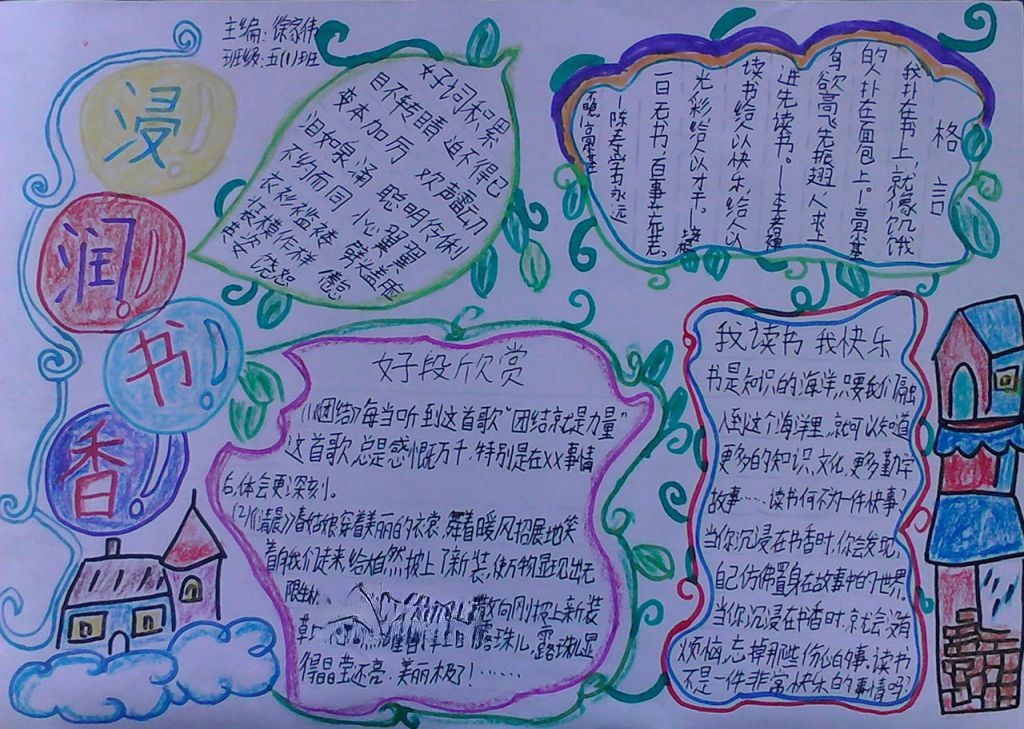 主编:徐家伟
班级:五(1)班
浸
润
书
香
好词积累
目不转睛 迫不得已
变本加厉 欢声雷动
泪如泉涌 聪明伶俐
不约而同 小心翼翼
衣衫褴褛
装模作样 倦怠
饶恕
格言
我扑在书上,就像饥饿
的人扑在面包上。—高尔基
鸟欲高飞先振翅,人求上
进先读书。——李苦禅
读书给人以快乐,给人以
光彩,给人以才干。—培根
一日无书,百事荒芜。
—陈寿 学者永远
好段欣赏
(1)《团结》每当听到这首歌“团结就是力量”
这首歌,总是感慨万千,特别是在××事情
后,体会更深刻。
(2)《清晨》春姑娘穿着美丽的衣裳,舞着暖风招展地笑
着向我们走来,给大自然披上了新装,使万物显现出无
限生机
散向刚披上新装
露珠儿,露珠儿显
得晶莹还亮,美丽极了!……
我读书 我快乐
书是知识的海洋,只要我们融
入到这个海洋里,就可以知道
更多的知识,文化,更多勤学
故事……读书何不为一件快事?
当你沉浸在书香时,你会发现,
自己仿佛置身在故事中的世界。
当你沉浸在书香时,你就会没有
烦恼,忘掉那些伤心的事,读书
不是一件非常快乐的事情吗?